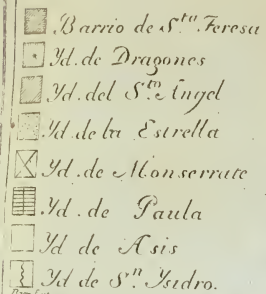 Barrio de S.ta Teresa
Yd. de Dragones
Yd. del S.to Angel
Yd. de la Estrella
Yd. de Monserrate
Yd. de Paula
Yd de Asis
Yd de S.n Ysidro.